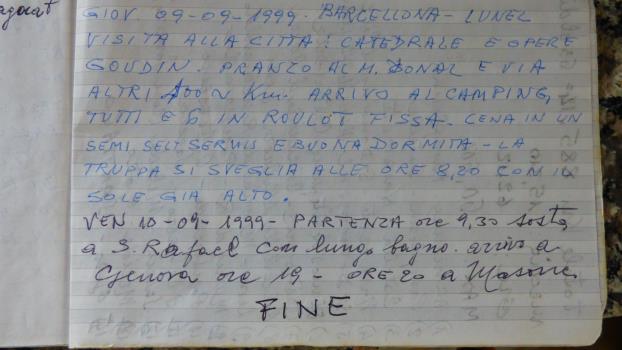 GIOV 09-09-1999. BARCELLONA - LUNEL
VISITA ALLA CITTA: CATEDRALE E OPERE
GOUDIN. PRANZO AL M. DONAL E VIA
ALTRI 400 ~ Km. ARRIVO AL CAMPING,
TUTTI E 6 IN ROULOT FISSA. CENA IN UN
SEMI, SELF SERVIS E BUONA DORMITA - LA
TRUPPA SI SVEGLIA ALLE ORE 8,20 CON IL
SOLE GIA ALTO.
VEN 10-09-1999- PARTENZA ore 9,30 sosta
a S. Rafael con lungo bagno. arrivo a
Genova ore 19 - ORE 20 a Masone.
FINE